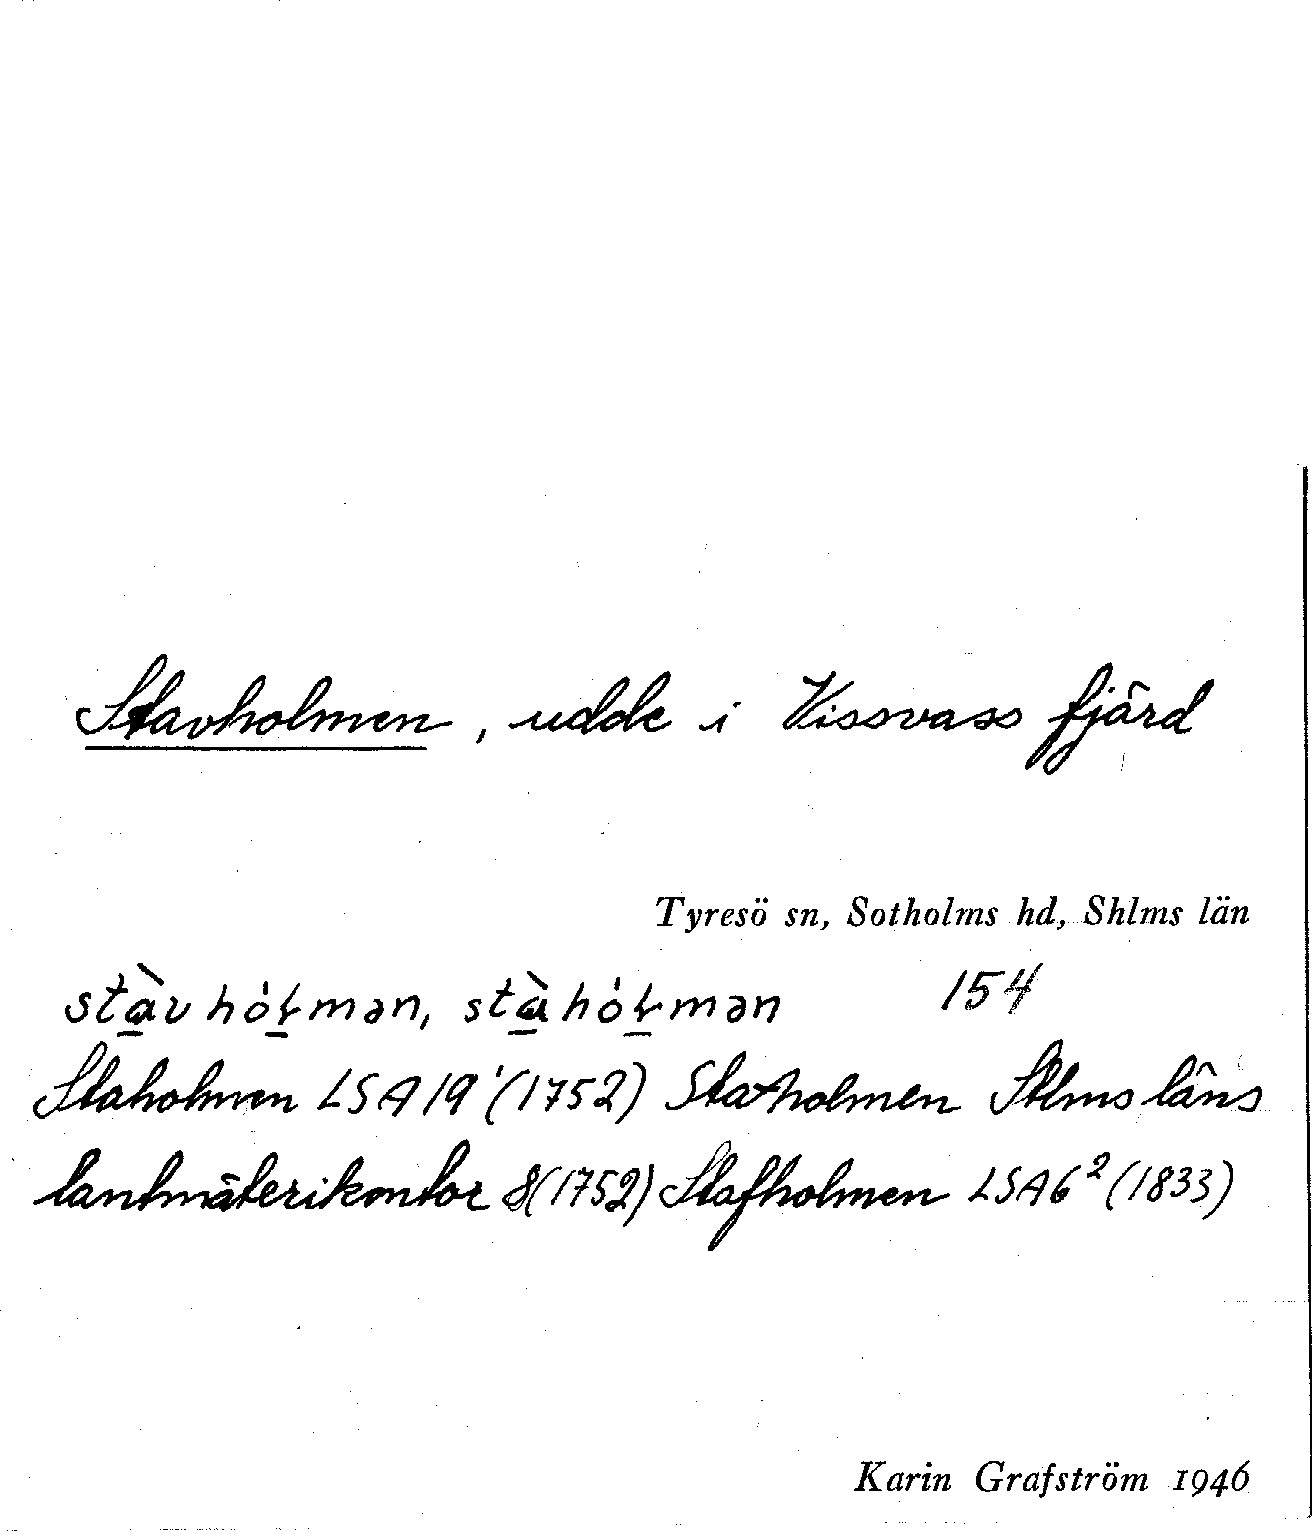 Stavholmen, udde i Vissvass fjärd
Tyresö sn, Sotholms hd, Shlms län
stàv hóɫmən, stà hóɫmən 154
Staholmen LSA 19' (1752) Staxholmen Sthlms läns
lantmäterikontor 8 (1752) Stafholmen LSA 6² (1833)
Karin Grafström 1946